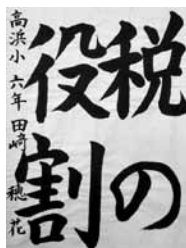 税の
役割
高浜小 六年 田﨑 穂花